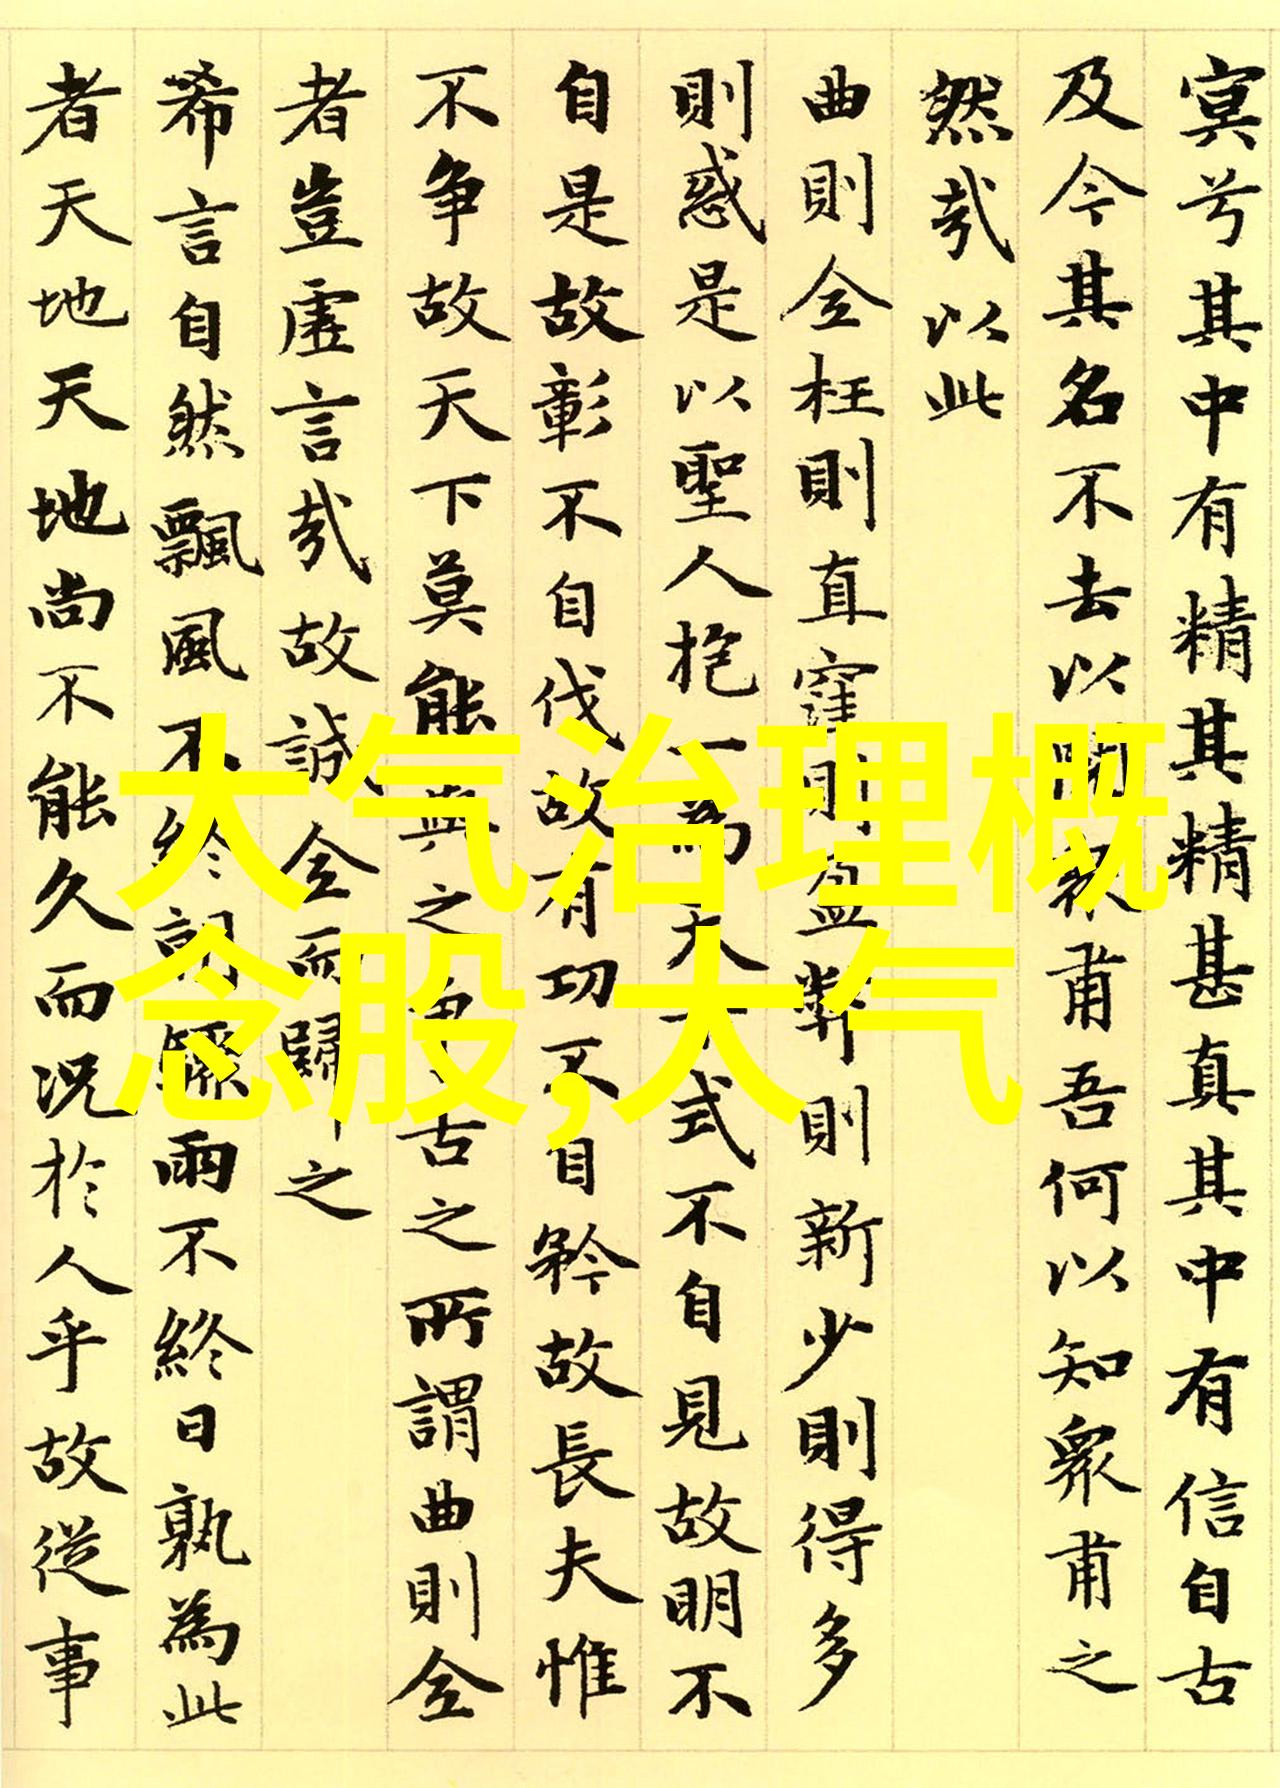 冥兮其中有精其精甚真其中有信自古
及今其名不去以閱衆甫吾何以知衆甫之
然哉以此
曲則全枉則直窪則盈弊則新少則得多
則惑是以聖人抱一為天下式不自見故明不
自是故彰不自伐故有功不自矜故長夫惟
不争故天下莫能與之争古之所謂曲則全
者豈虚言哉故誠全而歸之
希言自然飄風不終朝驟雨不終日孰為此
者天地天地尚不能久而況於人乎故從事
大气治理概
念股,大气